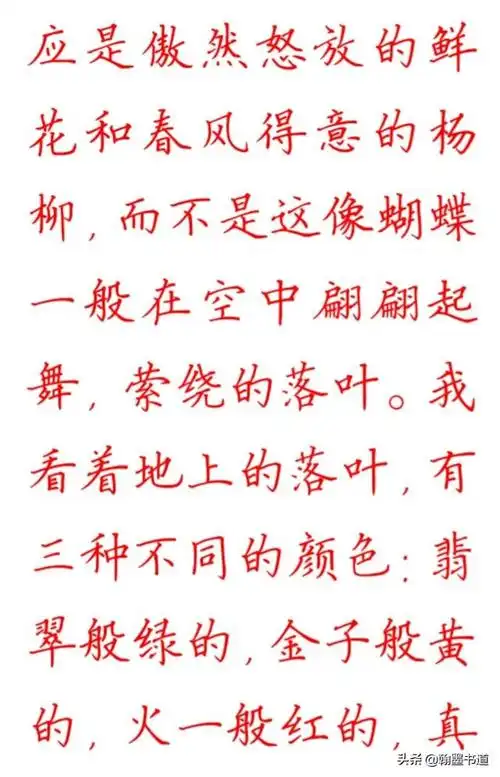 应是傲然怒放的鲜
花和春风得意的杨
柳，而不是这像蝴蝶
一般在空中翩翩起
舞，萦绕的落叶。我
看着地上的落叶，有
三种不同的颜色：翡
翠般绿的，金子般黄
的，火一般红的，真
头条@翰墨书道